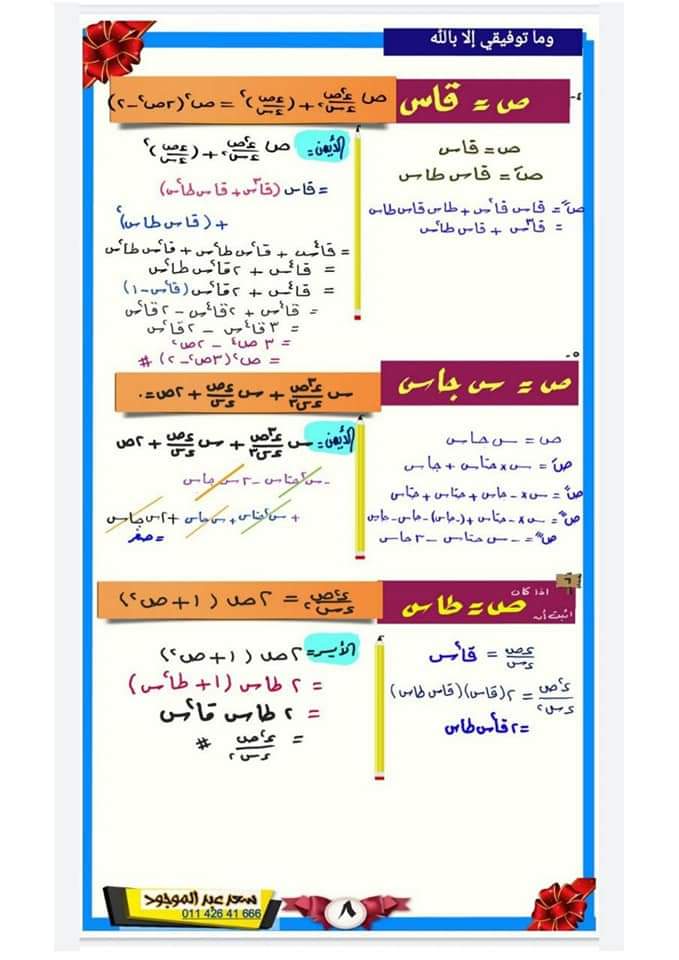 وما توفيقي إلا بالله
٤-
ص = قاس
ص ء٢ص/ءس٢ + (ءص/ءس)٢ = ص٢(٣ص٢-٢)
ص = قاس
صَ = قاس طاس
صً = قاس قا٢س + طاس قاس طاس
= قا٣س + قاس طا٢س
الأيمن = ص ء٢ص/ءس٢ + (ءص/ءس)٢
= قاس (قا٣س + قاس طا٢س)
+ (قاس طاس)٢
= قا٤س + قا٢س طا٢س + قا٢س طا٢س
= قا٤س + ٢قا٢س طا٢س
= قا٤س + ٢قا٢س (قا٢س-١)
= قا٤س + ٢قا٤س - ٢قا٢س
= ٣قا٤س - ٢قا٢س
= ٣ص٤ - ٢ص٢
= ص٢(٣ص٢-٢) #
٥-
ص = س جاس
س ء٣ص/ءس٣ + س ءص/ءس + ٢ص = ٠
ص = س جاس
صَ = س × جتاس + جاس
صً = س × -جاس + جتاس + جتاس
= س × -جتاس + (-جاس) - جاس - جاس
= -س جتاس - ٣جاس
الأيمن = س ء٣ص/ءس٣ + س ءص/ءس + ٢ص
-س٢جتاس - ٣س جاس
+ س٢جتاس + س جاس + ٢س جاس
= صفر
٦
اذا كان
ص = طاس
اثبت أن
ء٢ص/ءس٢ = ٢ص (١+ص٢)
ءص/ءس = قا٢س
ء٢ص/ءس٢ = ٢(قاس)(قاس طاس)
= ٢قا٢س طاس
الأيسر = ٢ص (١+ص٢)
= ٢ طاس (١+ طا٢س)
= ٢ طاس قا٢س
= ء٢ص/ءس٢ #
سعد عبد الموجود
011 426 41 666
٨